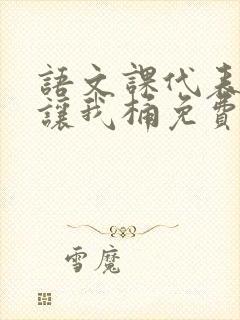 語文課代表
讓我桶免費
雪魔